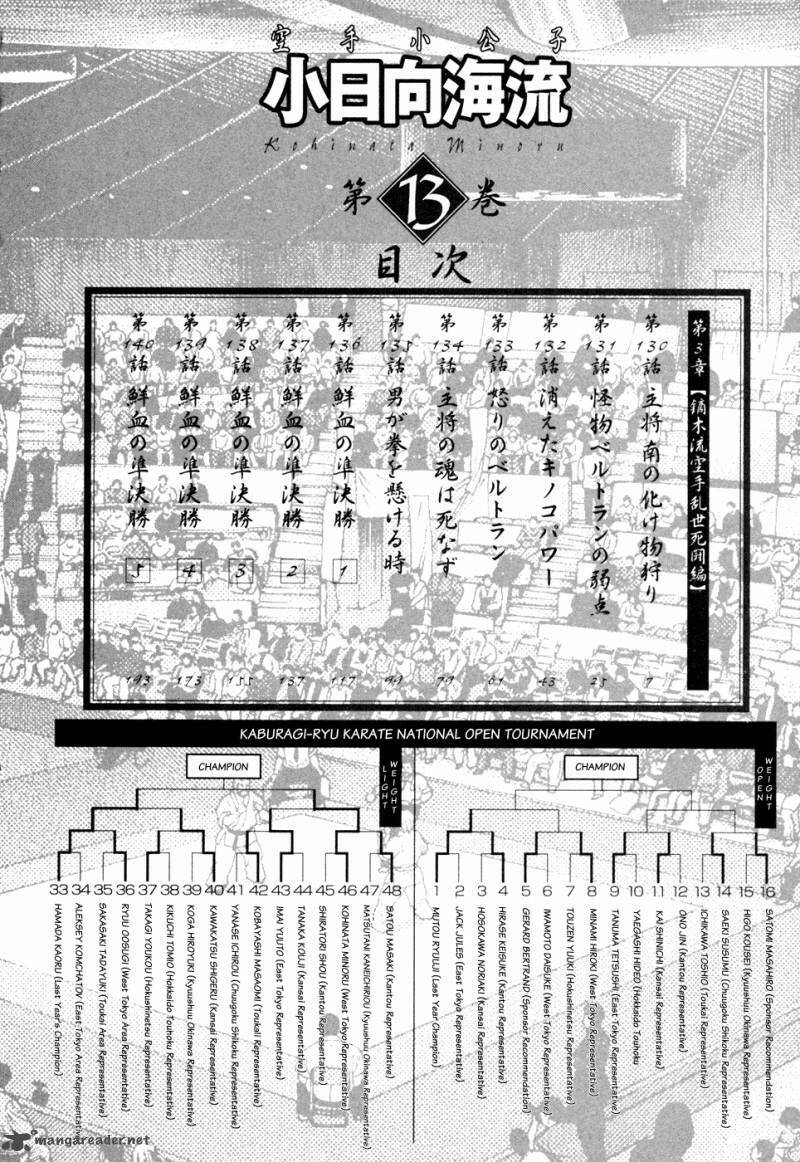 空手小公子
小日向海流
Kohinata Minoru
第13巻
目次
第3章【鏑木流空手乱世死闘編】
第130話 主将南の化け物狩り 7
第131話 怪物ベルトランの弱点 25
第132話 消えたキノコパワー 43
第133話 怒りのベルトラン 61
第134話 主将の魂は死なず 79
第135話 男が拳を懸ける時
第136話 鮮血の準決勝 1 117
第137話 鮮血の準決勝 2 137
第138話 鮮血の準決勝 3 155
第139話 鮮血の準決勝 4 173
第140話 鮮血の準決勝 5 193
KABURAGI-RYU KARATE NATIONAL OPEN TOURNAMENT
CHAMPION
LIGHT WEIGHT
33 HAMADA KAORU (Last Year's Champion)
34 ALEKSEY KONCHATOV (East Tokyo Area Representative)
35 SAKASAKI TADAYUKI (Toukai Area Representative)
36 RYUJI OOSUGI (West Tokyo Area Representative)
37 TAKAGI YOUKOU (Hokushinetsu Representative)
38 KIKUCHI TOMIO (Hokkaido Touhoku Representative)
39 KOGA HIROYUKI (Kyuushuu Okinawa Representative)
40 KAWAKATSU SHIGERU (Kansai Representative)
41 YANASE ICHIROU (Chuugoku Shikoku Representative)
42 KOBAYASHI MASAOMI (Toukai Representative)
43 IMAI YUUTO (East Tokyo Representative)
44 TANAKA KOUJI (Kansai Representative)
45 SHIRATORI SHOU (Kantou Representative)
46 KOHINATA MINORU (West Tokyo Representative)
47 MATSUTANI KANEICHIROU (Kyuushuu Okinawa Representative)
48 SATOU MASAKI (Kantou Representative)
CHAMPION
OPEN WEIGHT
1 MUTOU RYUUJI (Last Year Champion)
2 JACK JULES (East Tokyo Representative)
3 HOSOKAWA NORIAKI (Kansai Representative)
4 HIRASE KEISUKE (Kantou Representative)
5 GERARD BERTRAND (Sponsor Recommendation)
6 IWAMOTO DAISUKE (West Tokyo Representative)
7 TOUZEN YUUKI (Hokushinetsu Representative)
8 MINAMI HIROKI (West Tokyo Representative)
9 TANUMA TETSUSHI (East Tokyo Representative)
10 YAEGASHI HIDEO (Hokkaido Touhoku
11 KAI SHINICHI (Kansai Representative)
12 ONO JIN (Kantou Representative)
13 ICHIKAWA TOSHIO (Toukai Representative)
14 SAEKI SUSUMU (Chuugoku Shikoku Representative)
15 HIGO KOUSEI (Kyuushuu Okinawa Representative)
16 SATOMI MASAHIRO (Sponsor Recommendation)
mangareader.net